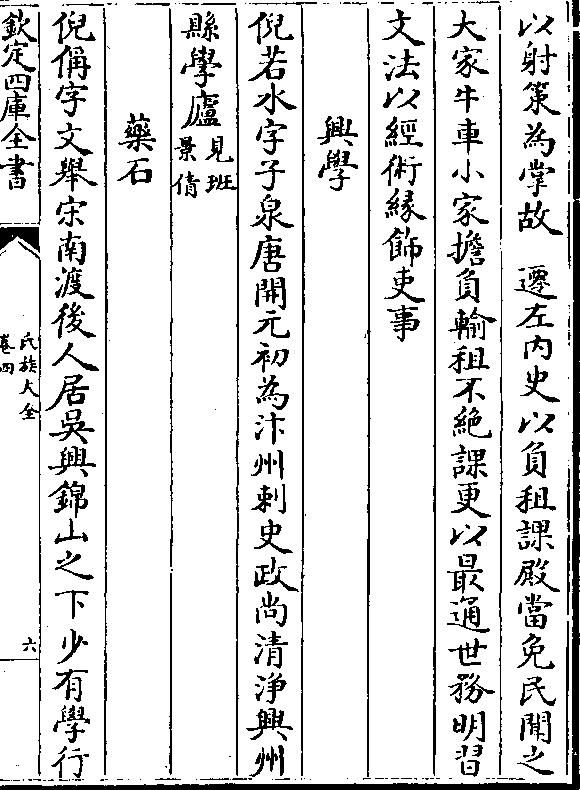 以射策為掌故　遷左内史以負租課殿當免民聞之
大家牛車小家擔負輸租不絶課更以最通世務明習
文法以經術緣飾吏事
興學
倪若水字子泉唐開元初為汴州刺史政尚清淨興州
縣學廬見班景倩
藥石
倪偁字文舉宋南渡後人居吳興錦山之下少有學行
欽定四庫全書
氏族大全
卷四
六